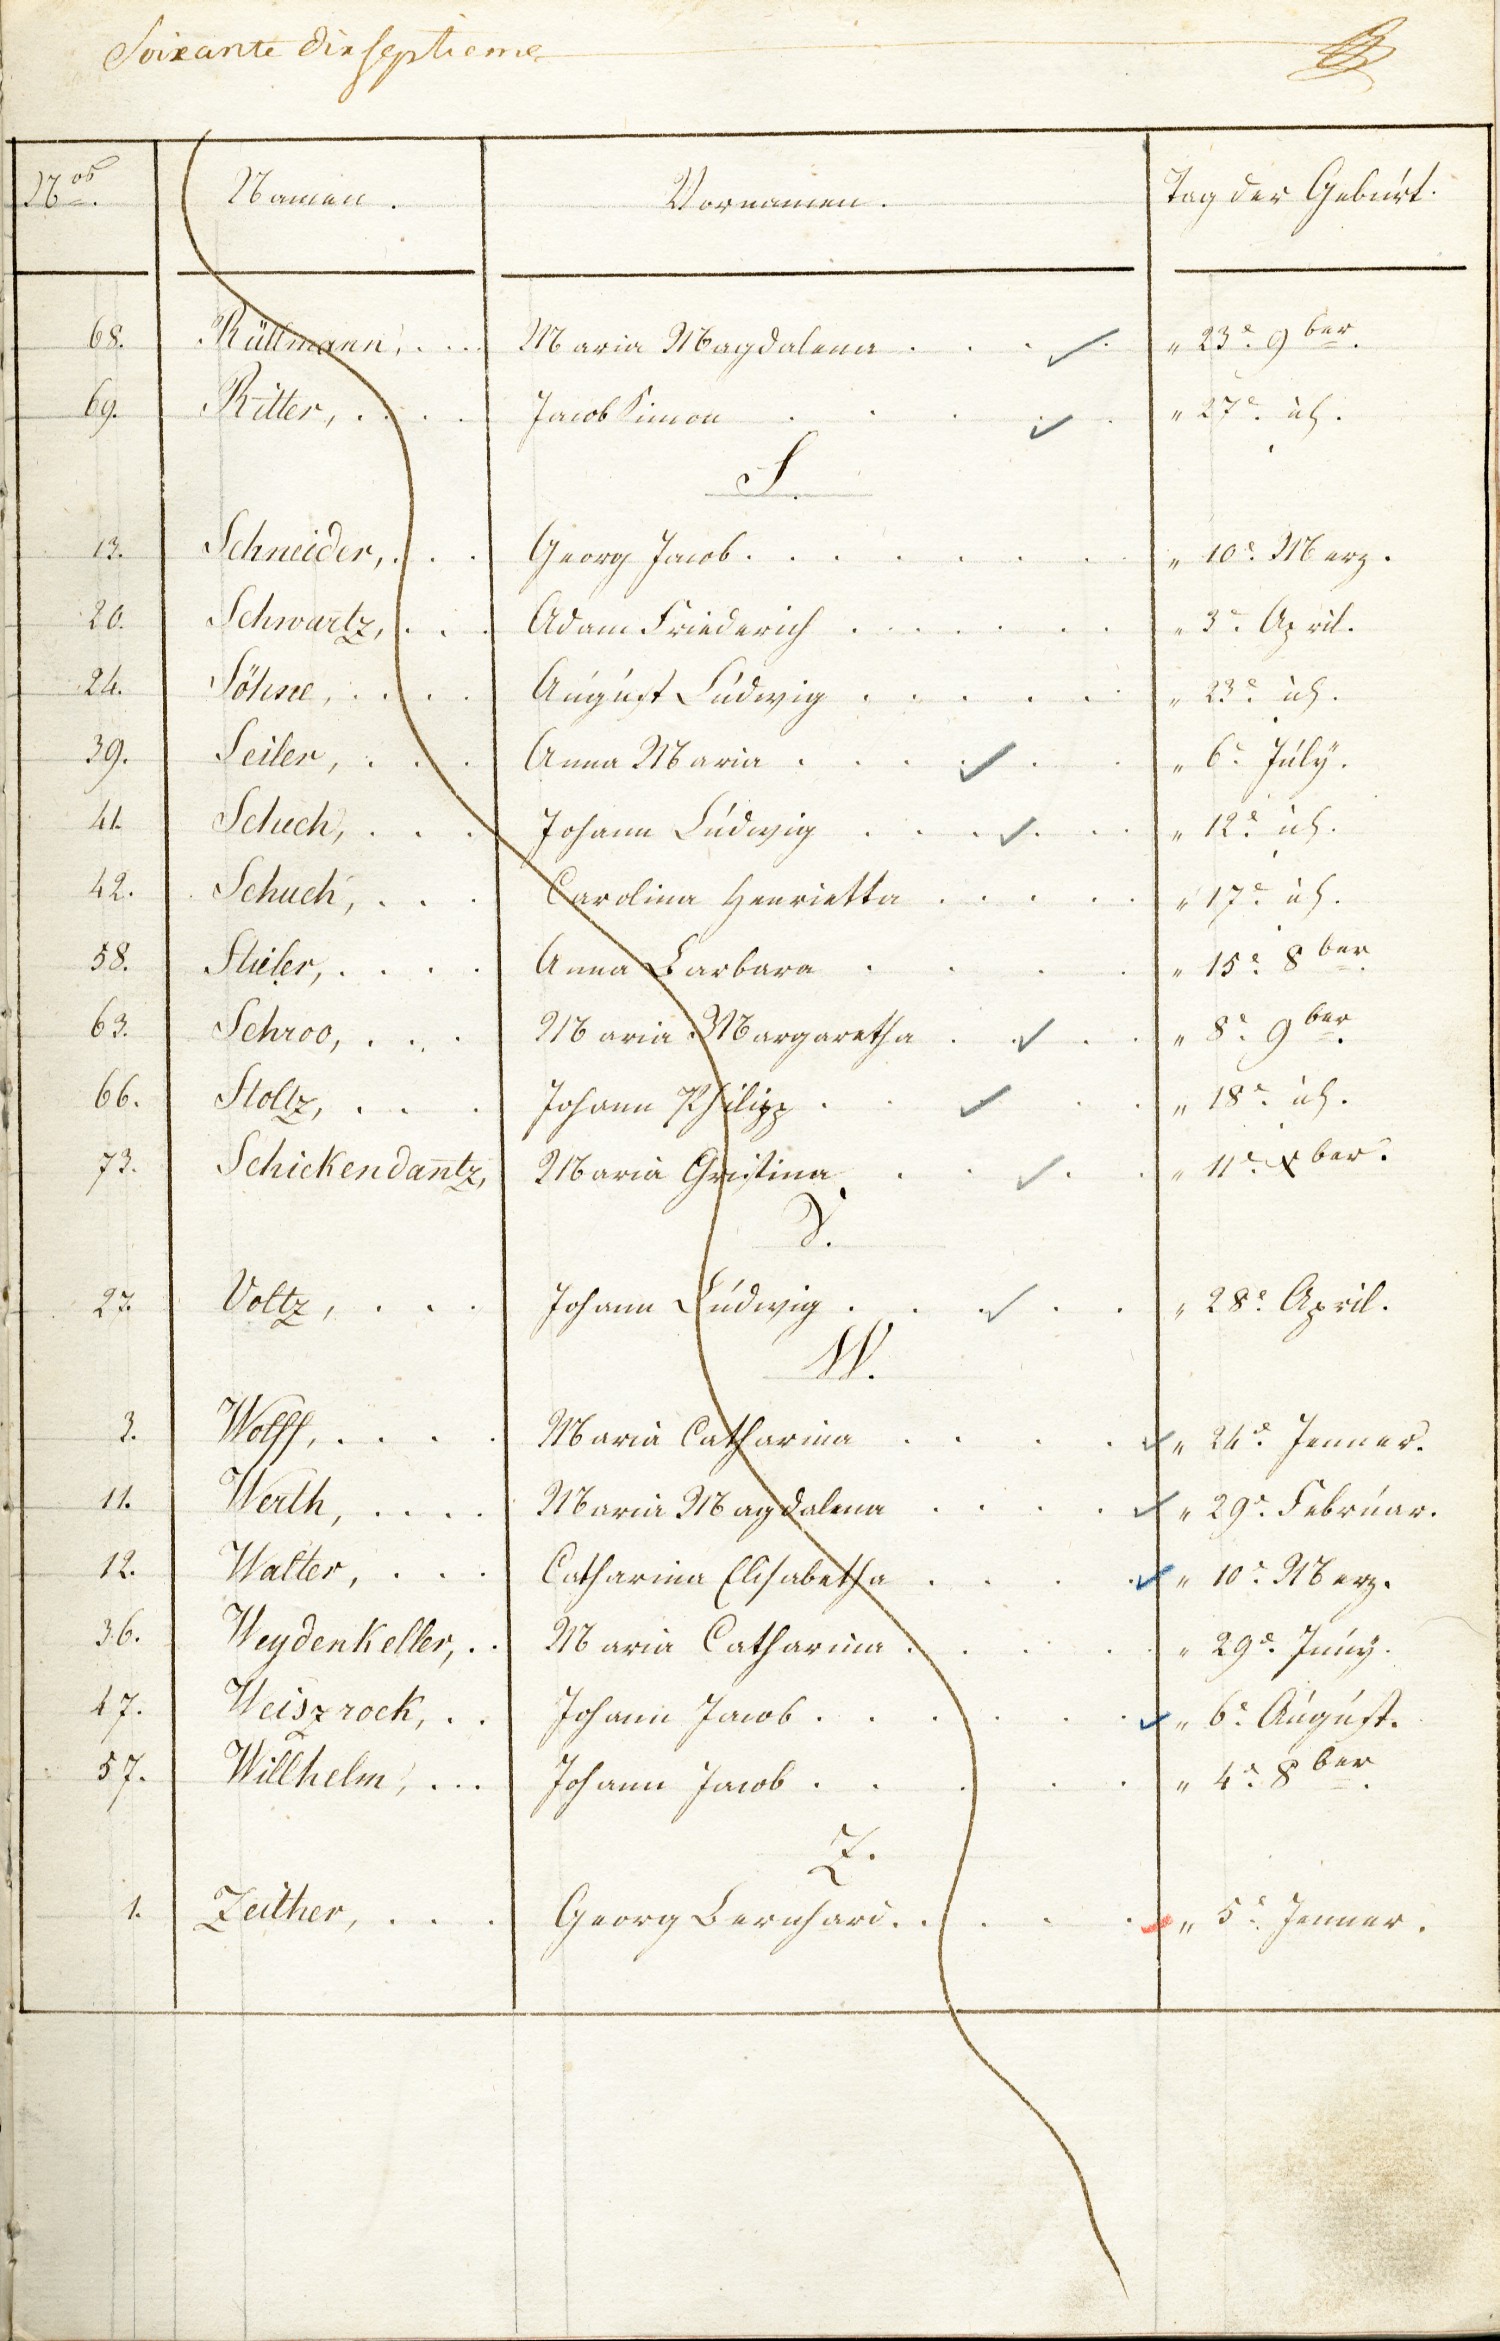 Soixante dix septieme
Nos. Namen. Vornamen. Tag der Geburt.
68. Rüllmann, . . . Maria Magdalena . . . . " 23e. 9ber.
69. Ritter, . . . . Jacob Simon . . . . " 27e. id.
S.
13. Schneider, . . . Georg Jacob . . . . . . " 10e. Merz.
20. Schwartz, . . . Adam Friederich . . . . . . " 3e. April.
24. Söhne, . . . . August Ludwig . . . . . " 23e. id.
39. Seiler, . . . Anna Maria . . . . . " 6e. July.
41. Schuch, . . . Johann Ludwig . . . . . " 12e. id.
42. Schuch, . . . Carolina Henrietta . . . . . " 17e. id.
58. Stiler, . . . . Anna Barbara . . . . " 15e. 8ber.
63. Schroo, . . . Maria Margaretha . . . . " 8e. 9ber.
66. Stoltz, . . . Johann Philipp . . . . " 18e. id.
73. Schickendantz, Maria Cristina . . . " 11e. Xber.
V.
27. Voltz, . . . Johann Ludwig . . . . . " 28e. April.
W.
3. Wolff, . . . . Maria Catharina . . . . " 24e. Jenner.
11. Werth, . . . . Maria Magdalena . . . . " 29e. Februar.
12. Walter, . . . Catharina Elisabetha . . . . " 10e. Merz.
36. Weydenkeller, . . Maria Catharina . . . . " 29e. Juny.
47. Weiszrock, . . Johann Jacob . . . . . . " 6e. August.
57. Willhelm, . . . Johann Jacob . . . . . " 4e. 8ber.
Z.
1. Zeither, . . . Georg Bernhard . . . . " 5e. Jenner.